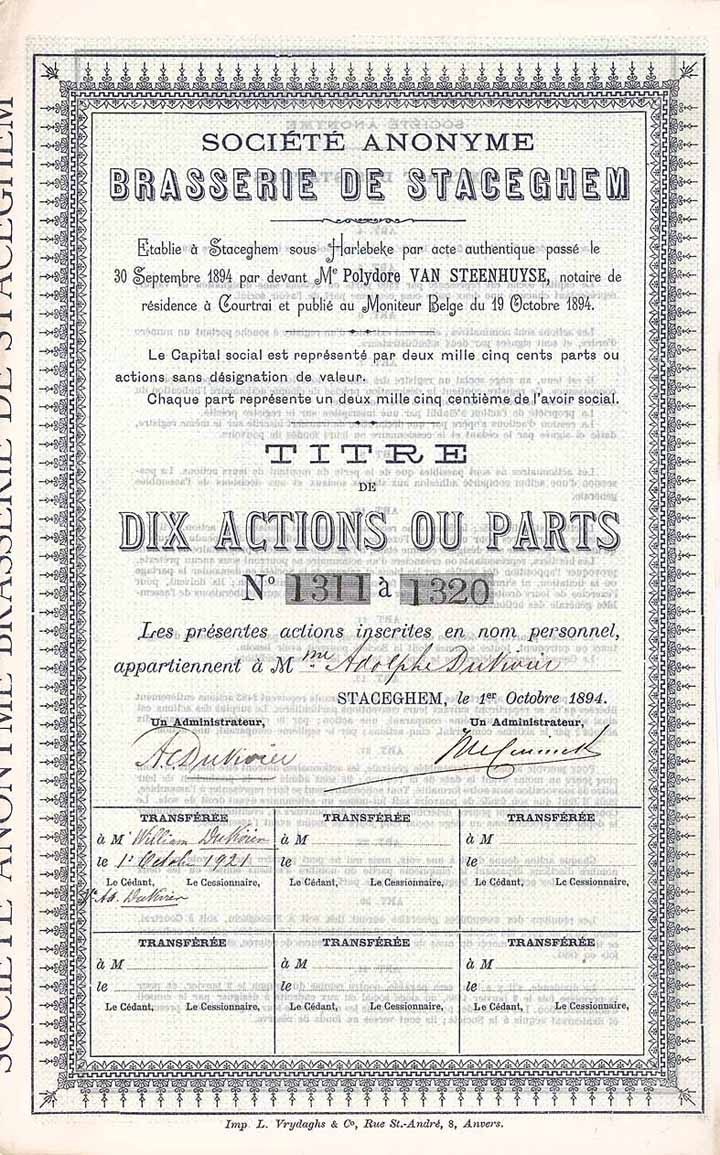 SOCIÉTÉ ANONYME BRASSERIE DE STACEGHEM
SOCIÉTÉ ANONYME
BRASSERIE DE STACEGHEM
Etablie à Staceghem sous Harlebeke par acte authentique passé le
30 Septembre 1894 par devant Me Polydore VAN STEENHUYSE, notaire de
résidence à Courtrai et publié au Moniteur Belge du 19 Octobre 1894.
Le Capital social est représenté par deux mille cinq cents parts ou
actions sans désignation de valeur.
Chaque part représente un deux mille cinq centième de l'avoir social.
TITRE
DE
DIX ACTIONS OU PARTS
No 1311 à 1320
Les présentes actions inscrites en nom personnel,
appartiennent à Mme Adolphe Dutivier
STACEGHEM, le 1er Octobre 1894.
Un Administrateur, Un Administrateur,
TRANSFÉRÉE TRANSFÉRÉE TRANSFÉRÉE
à Mr William à M à M
le 1r Octobre 1921 le le
Le Cédant, Le Cessionnaire, Le Cédant, Le Cessionnaire, Le Cédant, Le Cessionnaire,
TRANSFÉRÉE TRANSFÉRÉE TRANSFÉRÉE
à M à M à M
le le le
Le Cédant, Le Cessionnaire, Le Cédant, Le Cessionnaire, Le Cédant, Le Cessionnaire,
Imp. L. Vrydaghs & Co, Rue St.-André, 8, Anvers.